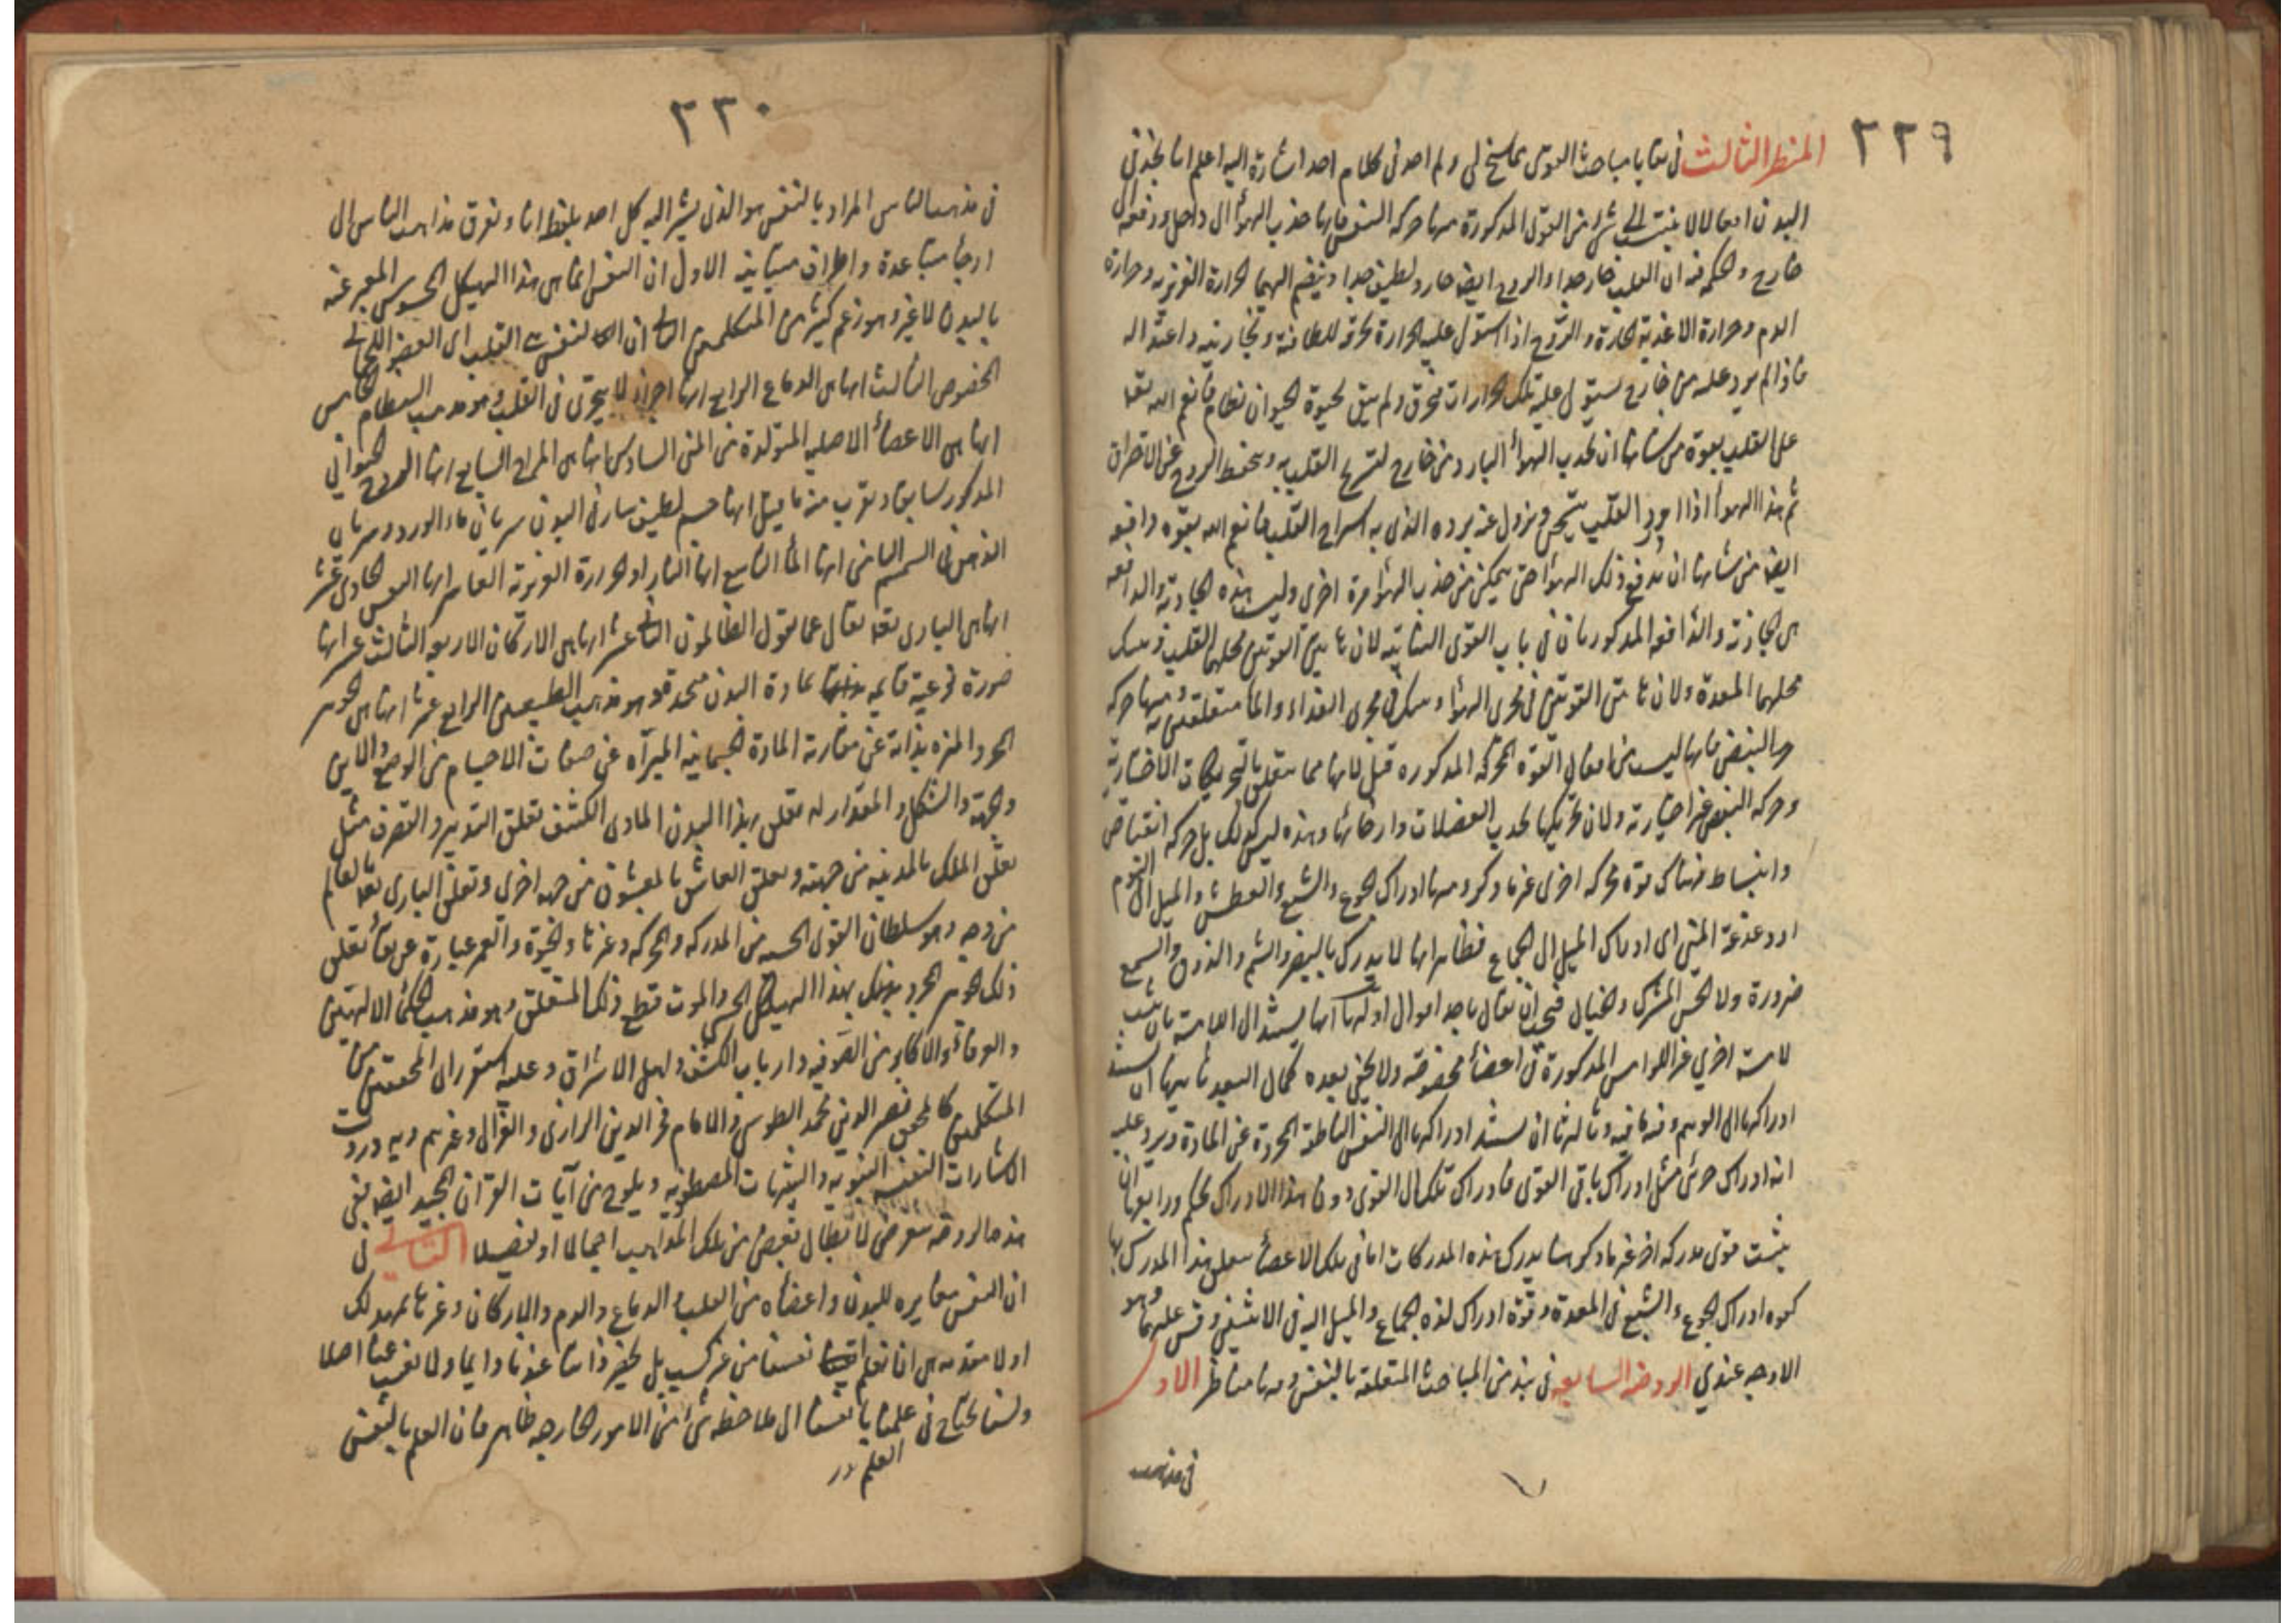 ٢٢٩
المنظر الثالث في بقايا مباحث القوى مما سنح لي ولم اجد في كلام احد اشارة اليه اعلم انا نجد في
البدن افعالا لا ينتسب الى شئ من القوى المذكورة منها حركة التنفس فانها جذب الهواء الى داخل ودفعه الى
خارج والحكمة فيه ان القلب حار جدا والروح ايضا حار ولطيف جدا وينضم اليهما الحرارة الغريزية وحرارة
الدم وحرارة الاغذية الحارة والروح اذا استولى عليه الحرارة تحرقه للطافته وبخاريته واعتداله
فاذا لم يرد عليه من خارج يستولى عليه تلك الحرارات فتحرق ولم يبق لحيوة الحيوان نظام فانعم الله تعالى
على القلب بقوة من شانها ان تجذب الهواء البارد من خارج لتسريح القلب به ويحفظ الروح عن الاحتراق
ثم هذا الهواء اذا ورد القلب يتسخن ويزول عنه برده الذي به استراح القلب فانعم الله بقوة دافعة
ايضا من شانها ان تدفع ذلك الهواء حتى يتمكن من جذب الهواء مرة اخرى وليست هذه الجاذبة والدافعة
هي الجاذبة والدافعة المذكورتان في باب القوى النباتية لان هاتين القوتين محلهما القلب وتينك
محلهما المعدة ولان هاتين القوتين في مجرى الهواء وتينك في مجرى الغذاء والماء متعلقتين به ومنها حركة
النبض فانها ليست من افعال القوة المحركة المذكورة قبل لانها مما يتعلق بالتحريكات الاختيارية
وحركة النبض غير اختيارية ولان تحريكها بجذب العضلات وارخائها وهذه ليس كذلك بل حركة انقباض
وانبساط فهناك قوة محركة اخرى غير ما ذكر ومنها ادراك الجوع والشبع والعطش والميل الى النوم
او دغدغة المني اي ادراك الميل الى الجماع فظاهر انها لا يدرك بالبصر والشم والذوق والسمع
ضرورة ولا الحس المشترك والخيال فيجب ان يقال باحد اموال اولها انها يستند الى اللامسة بان يثبت
لامسة اخرى غير اللوامس المذكورة في اعضاء مخصوصة ولا يخفى بعده كمال البعد ثانيها ان يستند
ادراكها الى الوهم وفيه ما فيه وثالثها ان يستند ادراكها الى النفس الناطقة المجردة عن المادة ويرد عليه
انه ادراك جزئي مثل ادراك باقي القوى فادراك تلك الى القوى دون هذا الادراك تحكم ورابعها ان
يثبت قوى مدركة اخر غير ما ذكر بها يدرك هذه المدركات اما في تلك الاعضاء يتعلق هذا المدرك بها
كقوة ادراك الجوع والشبع في المعدة وقوة ادراك لذة الجماع والميل اليه في الانثيين وقس عليهما وهو
الاوجه عندي الروضة السابعة في نبذ من المباحث المتعلقة بالنفس وفيها مناظر الاول
في مذاهب
٢٣٠
في مذاهب الناس المراد بالنفس هو الذي يشير اليه كل احد بلفظ انا وتفرق مذاهب الناس الى
ارجاء متباعدة واطراف متباينة الاول ان النفس انما هي هذا الهيكل المحسوس المعبر عنه
بالبدن لا غير وهو زعم كثير من المتكلمين الثاني ان النفس هي القلب اي العضو اللحماني
المخصوص الثالث انها هي الدماغ الرابع انها اجزاء لا يتجزى في القلب وهو مذهب النظام الخامس
انها هي الاعضاء الاصلية المتولدة من المني السادس انها هي المزاج السابع انها الروح الحيواني
المذكور سابقا ويقرب منه ما قيل انها جسم لطيف سار في البدن سريان ماء الورد وسريان
الدهن في السمسم الثامن انها الماء التاسع انها النار او الحرارة الغريزية العاشر انها النفس الحادي عشر
انها هي الباري تعالى تعالى عما يقول الظالمون الثاني عشر انها هي الاركان الاربعة الثالث عشر انها
صورة نوعية قايمة بمادة البدن متحدة وهو مذهب الطبيعيين الرابع عشر انها هي الجوهر
المجرد المنزه بذاته عن مقارنة المادة الجسمانية المبراة عن صفات الاجسام من الوضع والاين
والجهة والشكل والمقدار له تعلق بهذا البدن المادي الكثيف تعلق التدبير والتصرف مثل
تعلق الملك بالمدينة من جهته وتعلق العاشق بالمعشوق من جهة اخرى وتعلق الباري تعالى بالعالم
من وجه وهو سلطان القوى الحسية من المدركة والمحركة وغيرها والحيوة والعمر عبارة عن بقاء تعلق
ذلك الجوهر المجرد بهذا الهيكل الحسي والموت قطع ذلك التعلق وهو مذهب الحكماء الالهيين
والعرفاء والاكابر من الصوفية وارباب الكشف واهل الاشراق وعليه استقر راي المحققين من
المتكلمين كالمحقق نصير الدين محمد الطوسي والامام فخر الدين الرازي والغزالي وغيرهم وبه وردت
الاشارات النبوية والتنبيهات المصطفوية ويلوح من آيات القرآن المجيد ايضا ففي
هذه الروضة نتعرض لابطال بعض من تلك المذاهب اجمالا او تفصيلا الثاني في
ان النفس مغايرة للبدن واعضاه من القلب والدماغ والدم والاركان وغيرها نمهد لك
اولا مقدمة هي انا نعلم نفسنا من غير كسب بل يحضر ذاتنا عندنا دايما ولا نغيب عنا اصلا
ولسنا نحتاج في علمنا بانفسنا الى ملاحظة شئ من الامور الخارجة ظاهر فان العلم بالنفس
العلم